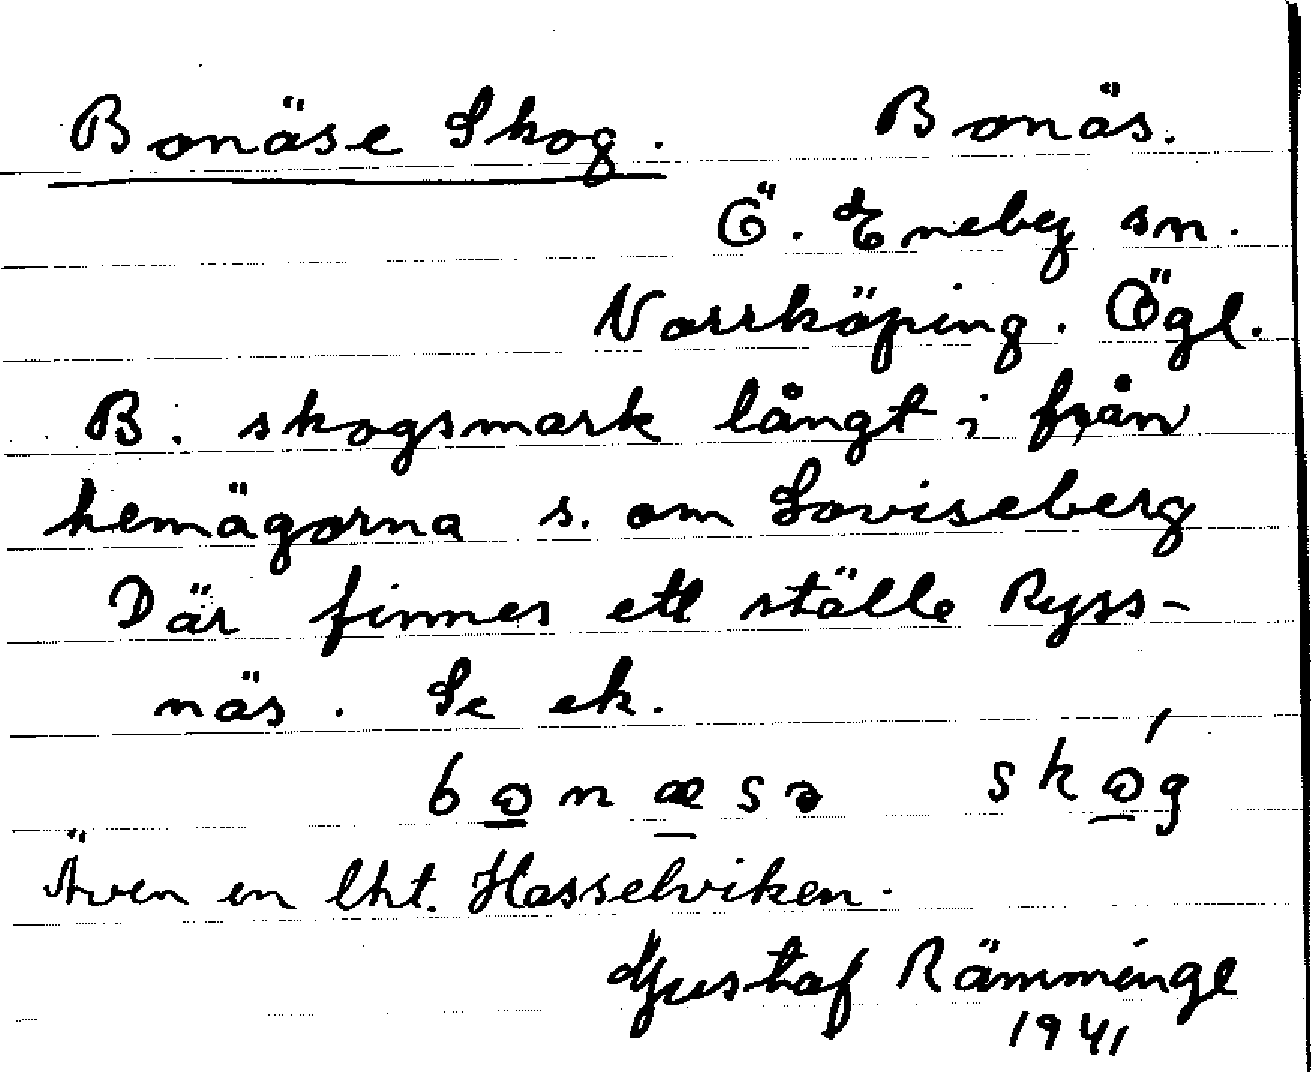 Bonäse Skog. Bonäs.
Ö. Eneby sn.
Norrköping. Ögl.
B. skogsmark långt ifrån
hemägorna s. om Loviseberg
Där finnes ett ställe Ryss-
näs. Se ek.
bonæsə skóg
Även en lht. Hasselviken.
Gustaf Rämminge
1941